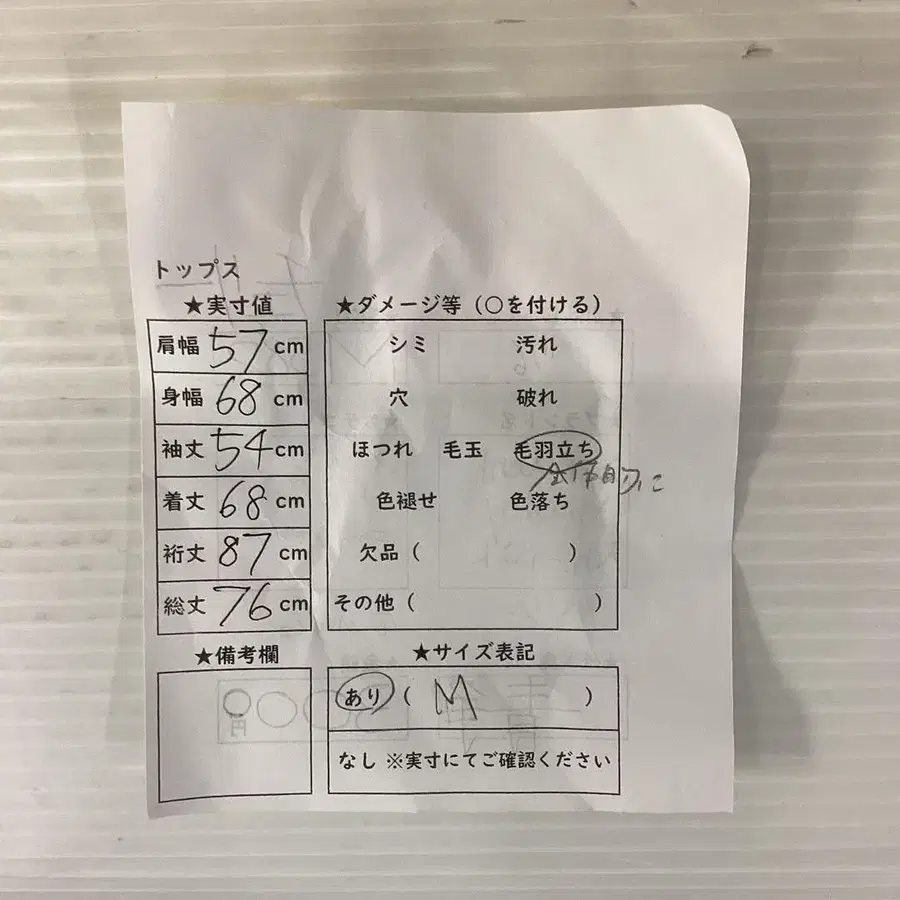 トップス
★実寸値
肩幅 57 cm
身幅 68 cm
袖丈 54 cm
着丈 68 cm
裄丈 87 cm
総丈 76 cm
★備考欄
★ダメージ等（○を付ける）
シミ 汚れ
穴 破れ
ほつれ 毛玉 毛羽立ち
全体的に
色褪せ 色落ち
欠品（ ）
その他（ ）
★サイズ表記
あり（ M ）
なし ※実寸にてご確認ください